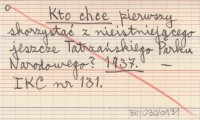 Kto chce pierwszy
skorzystać z nieistniejącego
jeszcze Tatrzańskiego Parku
Narodowego? 1937. —
IKC nr 131.